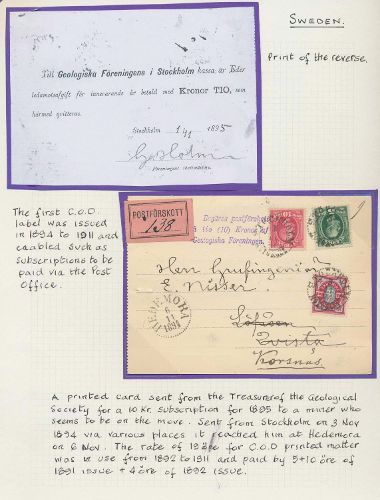 SWEDEN.
Print of the reverse.
Till Geologiska Föreningens i Stockholm kassa är Eder
ledamotsafgift för innevarande år betald med Kronor TIO, som
härmed qvitteras.
Stockholm 1/11 1895
G. Holm
Föreningens skattmästare
The first C.O.D
label was issued
in 1894 to 1911 and
enabled such as
subscriptions to be
paid via the Post
Office.
POSTFÖRSKOTT
138
Begäres postförskott
å tio (10) Kronor af
Geologiska Föreningen.
Herr
E. Nisser.
HEDEMORA
6
11
1894
Löfåsen
Korsnäs
A printed card sent from the Treasurer of the Geological
Society for a 10 Kr. subscription for 1895 to a miner who
seems to be on the move. Sent from Stockholm on 3 Nov
1894 via various places it reached him at Hedemora
on 6 Nov. The rate of 19 öre for C.O.D printed matter
was in use from 1892 to 1911 and paid by 5+10 öre of
1891 issue + 4 öre of 1892 issue.